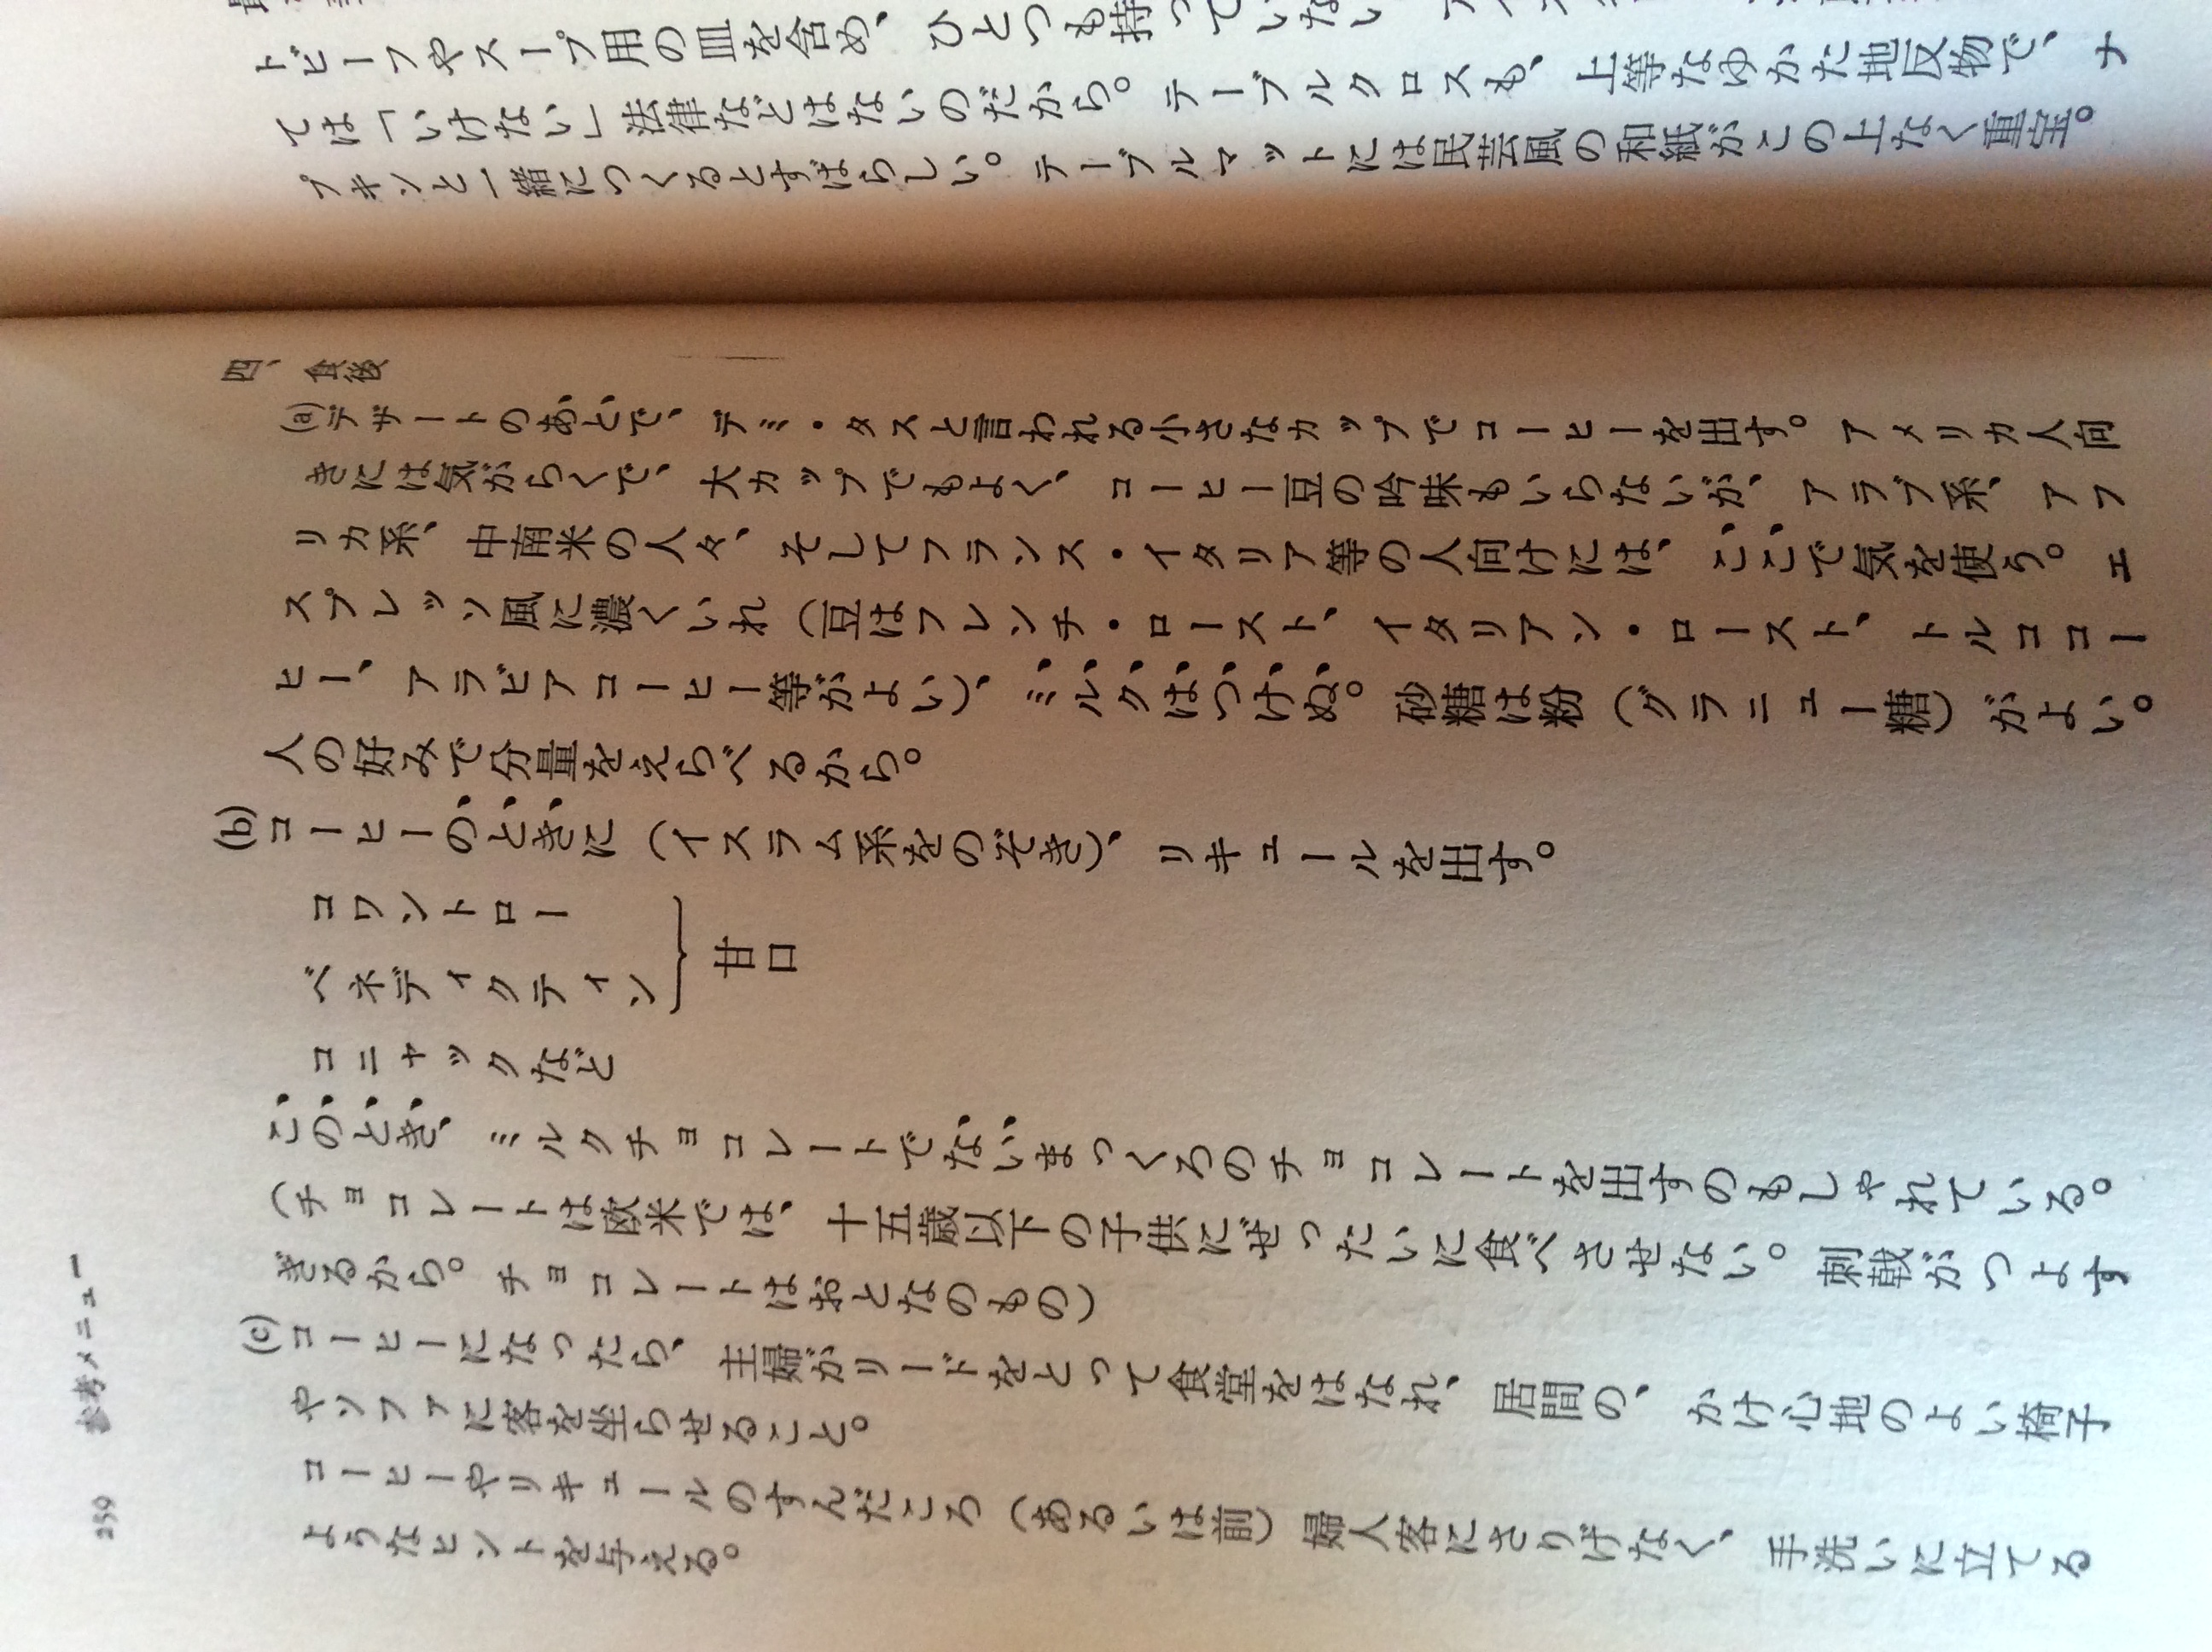 トビーフやスープ用の皿を含め、ひとつも持っていない
ては「いけない」法律などはないのだから。テーブルクロスも、上等なゆかた地反物で、ナ
プキンと一緒につくるとすばらしい。テーブルマットには民芸風の和紙がこの上なく重宝。
四、食後
(a)デザートのあとで、デミ・タスと言われる小さなカップでコーヒーを出す。アメリカ人向
きには気がらくで、大カップでもよく、コーヒー豆の吟味もいらないが、アラブ系、アフ
リカ系、中南米の人々、そしてフランス・イタリア等の人向けには、ここで気を使う。エ
スプレッソ風に濃くいれ（豆はフレンチ・ロースト、イタリアン・ロースト、トルココー
ヒー、アラビアコーヒー等がよい）、ミルクはつけぬ。砂糖は粉（グラニュー糖）がよい。
人の好みで分量をえらべるから。
(b)コーヒーのときに（イスラム系をのぞき）、リキュールを出す。
コワントロー
ベネディクティン
甘口
コニャックなど
このとき、ミルクチョコレートでないまっくろのチョコレートを出すのもしゃれている。
（チョコレートは欧米では、十五歳以下の子供にぜったいに食べさせない。刺戟がつよす
ぎるから。チョコレートはおとなのもの）
(c)コーヒーになったら、主婦がリードをとって食堂をはなれ、居間の、かけ心地のよい椅子
やソファに客を坐らせること。
コーヒーやリキュールのすんだころ（あるいは前）婦人客にさりげなく、手洗いに立てる
ようなヒントを与える。
259 参考メニュー